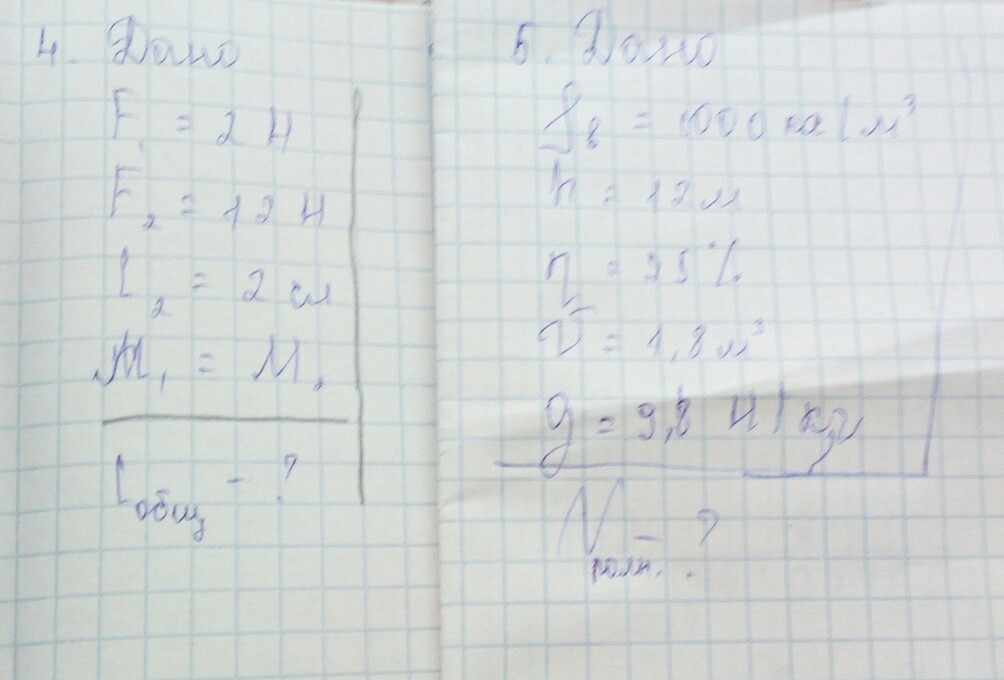 4. Дано
F₁ = 2 Н
F₂ = 12 Н
l₂ = 2 см
M₁ = M₂
l общ - ?
5. Дано
ρв = 1000 кг/м³
h = 12 м
η = 25%
V = 1,8 м³
g = 9,8 Н/кг
N полн. - ?